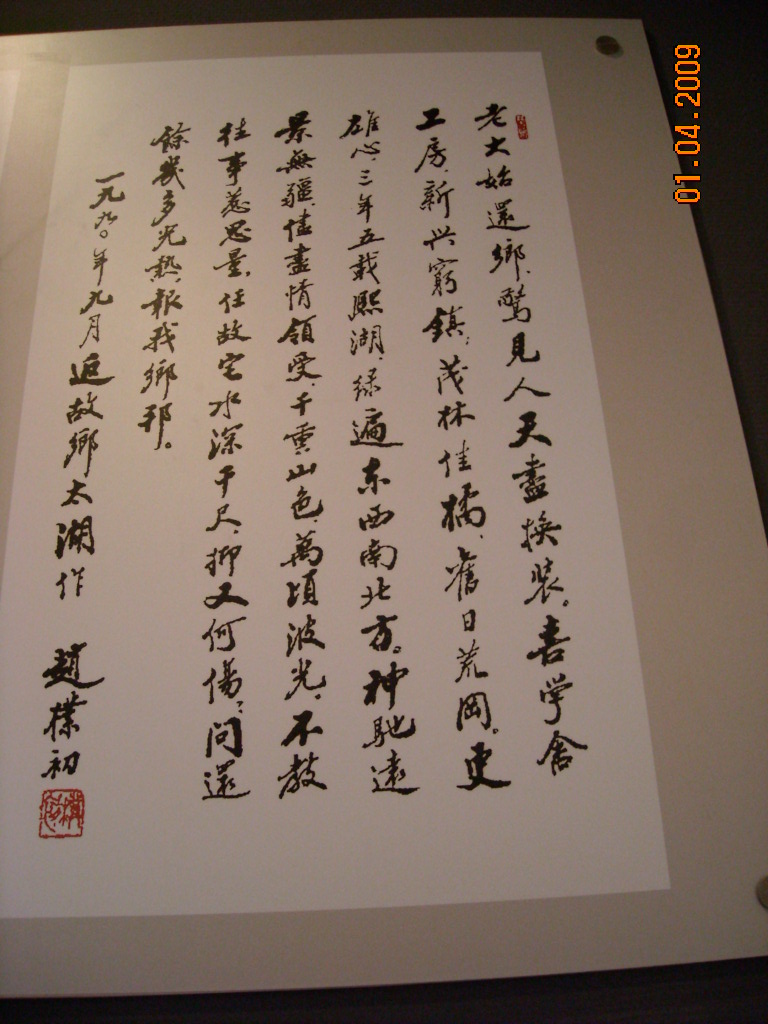 老大始還鄉、驚見人天盡换装。喜学舍
工房、新兴窮鎮、茂林佳橘、舊日荒岡。更
雄心、三年五载熙湖、绿遍东西南北方。神馳遠
景無疆、儘盡情領受、千重山色、萬頃波光。不教
往事惹思量。任故宅水深千尺、抑又何傷、问還
餘幾多光熱、報我鄉邦。
一九九〇年九月返故鄉太湖作 趙樸初
01.04.2009